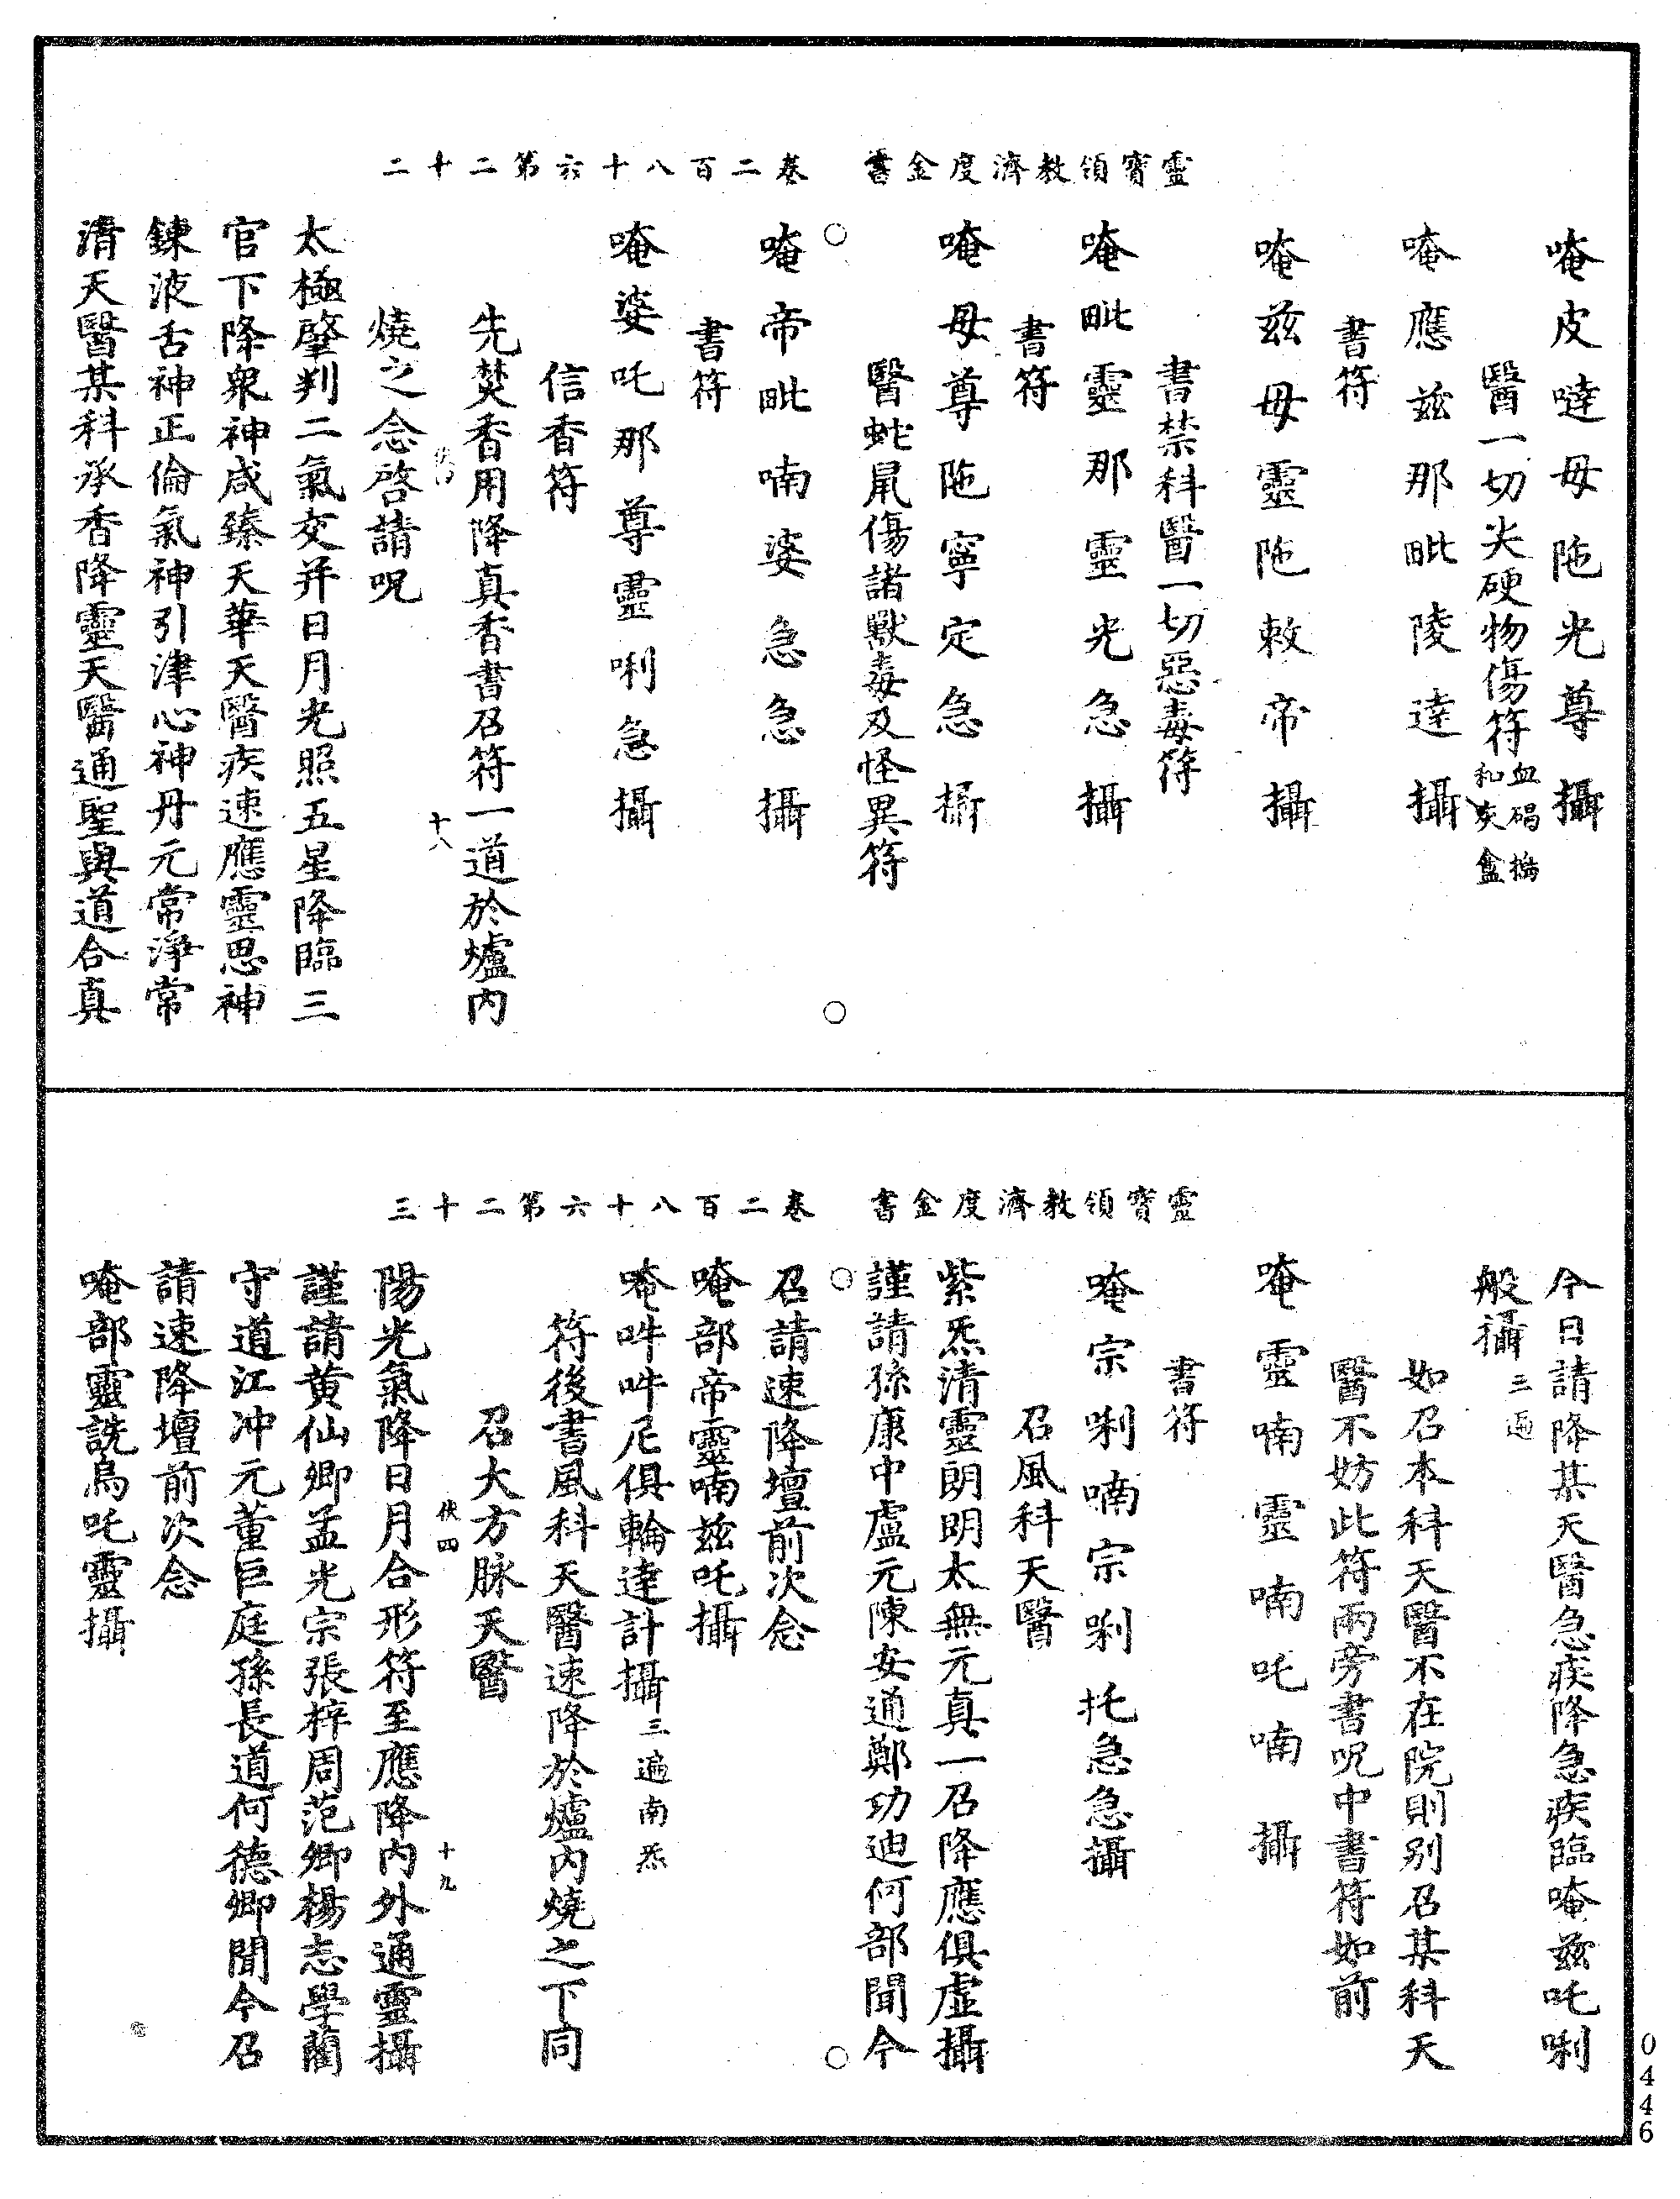 靈寶領教濟度金書　卷二百八十六第二十二
唵皮噠母陁光尊攝
醫一切尖硬物傷符血碣擣和炙盦
唵應兹那毗陵達攝
書符
唵兹母靈陁敕帝攝
書禁科醫一切惡毒符
唵毗靈那靈光急攝
書符
唵母尊陁寧定急攝
醫蛇鼠傷諸獸毒及怪異符
○　○
唵帝毗喃娑急急攝
書符
唵娑吒那尊靈唎急攝
信香符
先焚香用降真香書召符一道於爐内
十八
燒之念啓請呪
太極肇判二氣交并日月光照五星降臨三
官下降衆神咸臻天華天醫疾速應靈思神
鍊液舌神正倫氣神引津心神丹元常淨常
清天醫某科承香降靈天醫通聖與道合真
靈寶領教濟度金書　卷二百八十六第二十三
今日請降某天醫急疾降急疾臨唵兹吒唎
般攝三遍
如召本科天醫不在院則别召某科天
醫不妨此符兩旁書呪中書符如前
唵靈喃靈喃吒喃攝
書符
唵宗唎喃宗唎托急急攝
召風科天醫
紫炁清靈朗明太無元真一召降應俱虛攝
謹請孫康中盧元陳安通鄭功迪何部聞今
○　○
召請速降壇前次念
唵部帝靈喃兹吒攝
唵吽吽尼俱輪達計攝三遍南炁
符後書風科天醫速降於爐内燒之下同
召大方脉天醫
伏四　十九
陽光氣降日月合形符至應降内外通靈攝
謹請黄仙卿孟光宗張梓周范卿楊志學藺
守道江冲元董巨庭孫長道何德卿聞今召
請速降壇前次念
唵部靈詵烏吒靈攝
0446